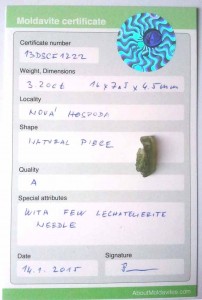 Moldavite certificate
Certificate number
13DBCF1222
Weight, Dimensions
3.20ct 14 x 7.5 x 4.5 mm
Locality
NOVÁ HOSPODA
Shape
NATURAL PIECE
Quality
A
Special attributes
WITH FEW LECHATELIERITE
NEEDLE
Date
Signature
14.1.2015
AboutMoldavites.com